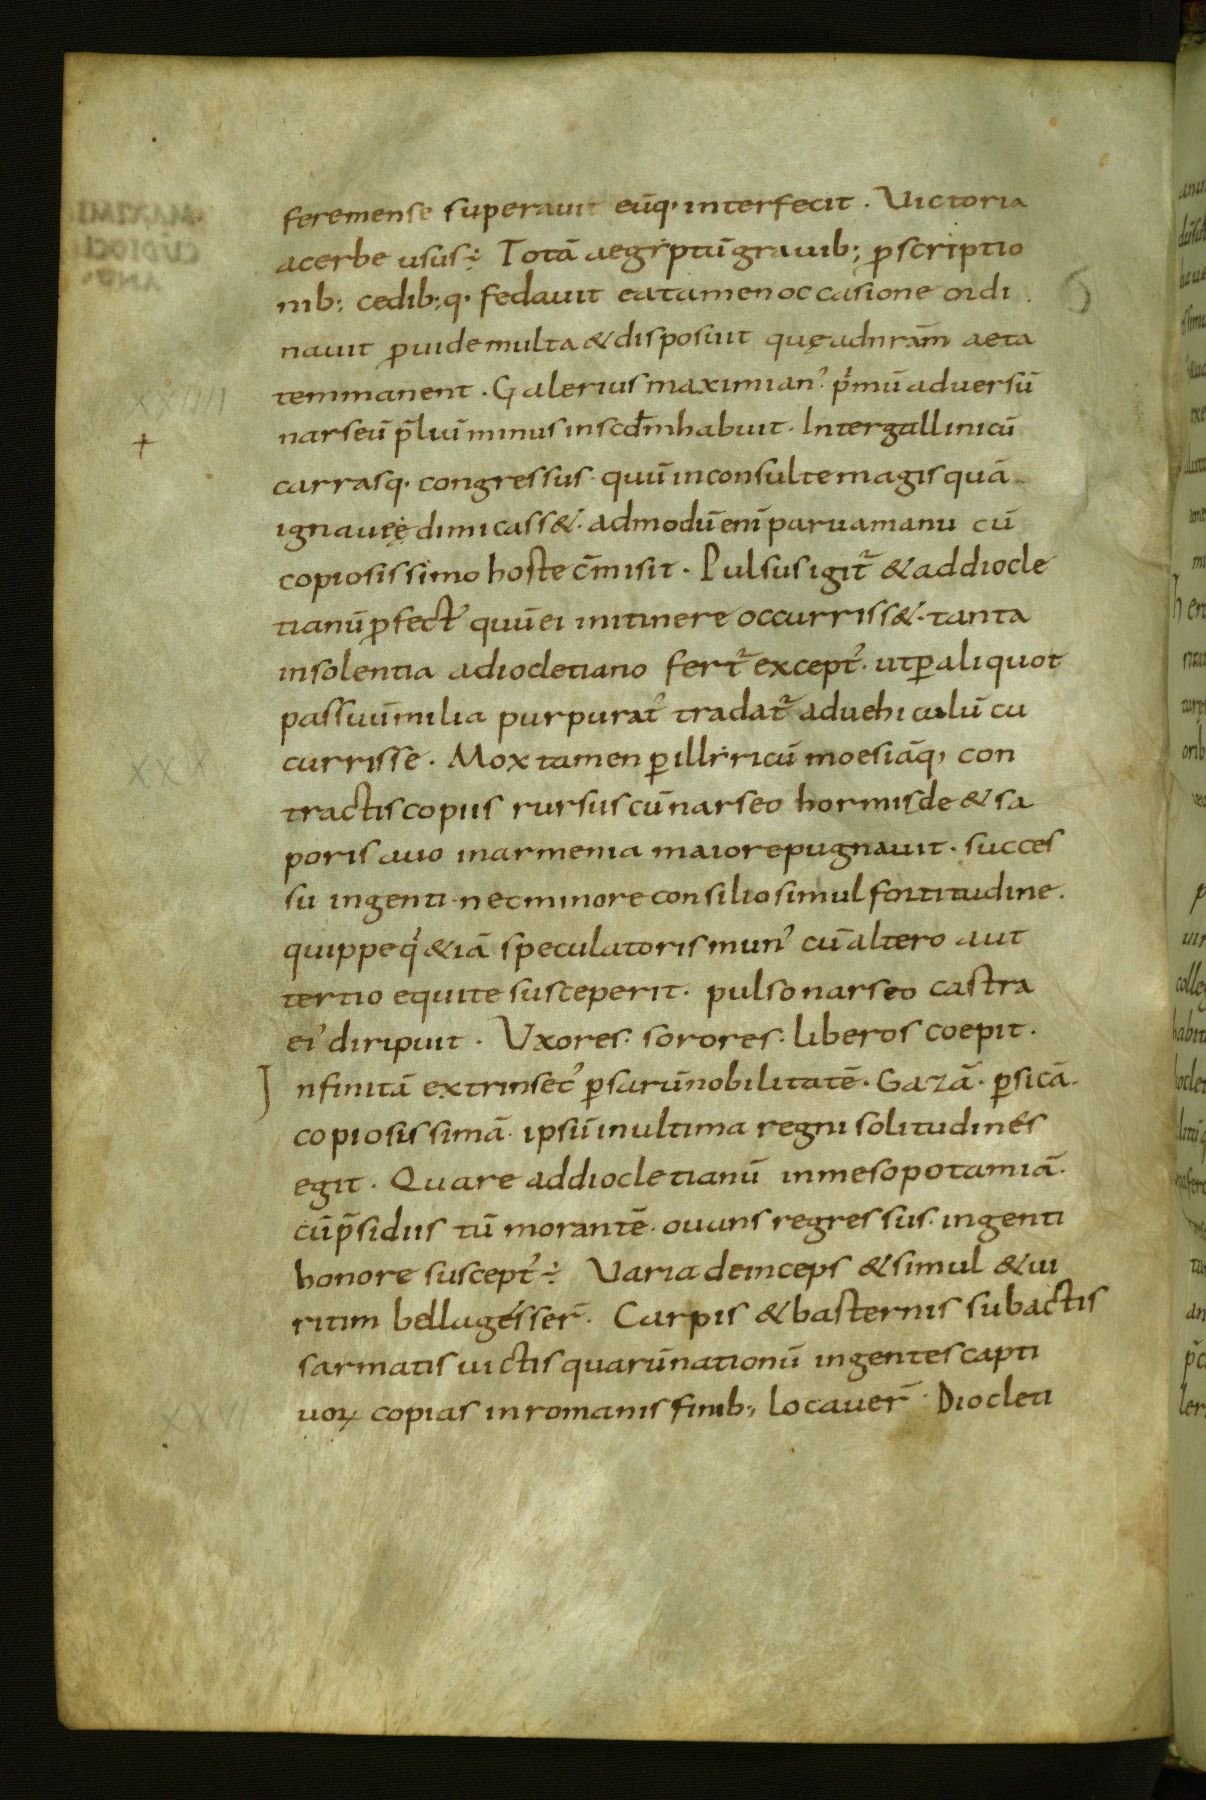 feremense superavit eūq· interfecit. Victoria
acerbe usus; Totā aegẏptū gravib; ꝓscriptio
nib; cedib;q· fedavit ea tamen occasione ordi
navit ꝓvide multa & disposuit quę ad nrām aeta
tem manent. Galerius maximian᾽ prͥmū adversū
narseū p̄lium in us in scdm̄ habuit. Inter gallinicū
carrasq· congressus· quū inconsulte magis quā
ignavę dimicass&· admodū enī parva manu cū
copiosissimo hoste c̄misit. Pulsus igit᷑ & ad diocle
tianū ꝓfect᾽ quū ei in itinere occurriss&· tanta
insolentia a diocletiano fert᷑ except᾽· ut ꝑ aliquot
passuū milia purpurat᾽ tradat᷑ ad vehiculū cu
currisse. Mox tamen ꝑ illẏricū moesiāq, con
tractis copiis rursus cū narseo hormisde & sa
poris avo in armenia maiore pugnavit· succes
su ingenti nec minore consilio simul fortitudine.
quippe qͥ &iā speculatoris mun᾽ cū altero aut
tertio equite susceperit. pulso narseo castra
ei᾽ diripuit. Uxores· sorores· liberos coepit.
Infinitā extrinsec᾽ ꝑsarū nobilitatē. Gazā· ꝑsicā·
copiosissimā· ipsū in ultima regni solitudines
egit. Quare ad diocletianū in mesopotamiā·
cū p̄sidiis tū morantē· ovans regressus· ingenti
honore suscept᾽; Varia deinceps & simul & vi
ritim bella gesser̄· Carpis & basternis subactis
sarmatis victis quarū nationū ingentes capti
voꝝ copias in romanis finib; locaver̄· Diocleti
XXIIII
+
XXV
XXVI